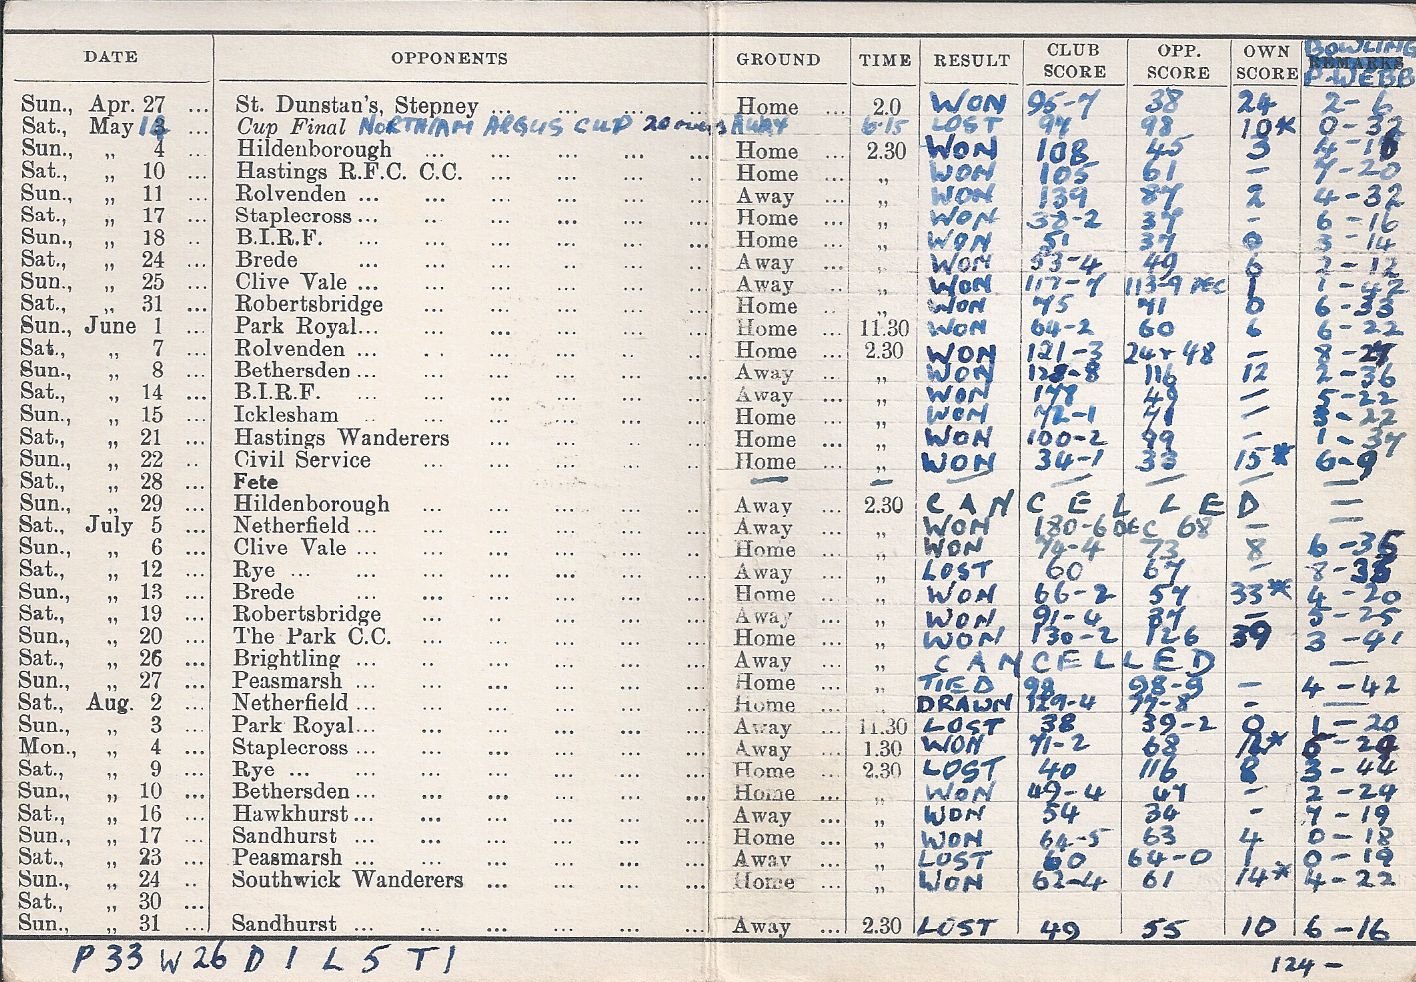 DATE OPPONENTS GROUND TIME RESULT CLUB SCORE OPP. SCORE OWN SCORE BOWLING REMARKS P.WEBB
Sun., Apr. 27 ... St. Dunstan's, Stepney ... Home ... 2.0 WON 95-7 38 24 2-6
Sat., May ... Cup Final NORTHIAM ARGUS CUP 20 overs AWAY 6.15 LOST 97 98 10* 0-32
Sun., „ 4 ... Hildenborough ... Home ... 2.30 WON 108 45 3
Sat., „ 10 ... Hastings R.F.C. C.C. ... Home ... „ WON 105 61 - 7-20
Sun., „ 11 ... Rolvenden ... Away ... „ WON 139 87 2 4-32
Sat., „ 17 ... Staplecross ... Home ... „ WON 38-2 37 - 6-16
Sun., „ 18 .. B.I.R.F. ... Home ... „ WON 51 37 0 3-14
Sat., „ 24 ... Brede ... Away ... „ WON 53-4 49 6 2-12
Sun., „ 25 ... Clive Vale ... Away ... „ WON 117-7 113-9 DEC 1 1-42
Sat., „ 31 ... Robertsbridge ... Home ... „ WON 75 71 0 6-33
Sun., June 1 ... Park Royal... Home ... 11.30 WON 64-2 60 6 6-22
Sat., „ 7 ... Rolvenden ... Home ... 2.30 WON 121-3 24 & 48 -
Sun., „ 8 ... Bethersden ... Away ... „ WON 128-8 116 12 2-36
Sat., „ 14 ... B.I.R.F. ... Away ... „ WON 49 - 5-22
Sun., „ 15 ... Icklesham ... Home ... „ WON 72-1 71 - 3-22
Sat., „ 21 ... Hastings Wanderers ... Home ... „ WON 100-2 99 - 1-37
Sun., „ 22 .. Civil Service ... Home ... „ WON 34-1 33 15* 6-9
Sat., „ 28 ... Fete - - - - - - -
Sun., „ 29 ... Hildenborough ... Away ... 2.30 CANCELLED -
Sat., July 5 ... Netherfield ... Away ... „ WON 180-6 DEC 68 - -
Sun., „ 6 ... Clive Vale ... Home ... „ WON 74-4 73 8 6-35
Sat., „ 12 ... Rye ... Away ... „ LOST 60 67 - 8-33
Sun., „ 13 ... Brede ... Home ... „ WON 66-2 57 33* 4-20
Sat., „ 19 ... Robertsbridge ... Away ... „ WON 91-4 37 - 5-25
Sun., „ 20 ... The Park C.C. ... Home ... „ WON 130-2 126 39 3-41
Sat., „ 26 ... Brightling ... Away ... „ CANCELLED -
Sun., „ 27 ... Peasmarsh ... Home ... „ TIED 98 98-9 - 4-42
Sat., Aug. 2 ... Netherfield ... Home ... „ DRAWN 129-4 77-8 - -
Sun., „ 3 ... Park Royal... Away ... 11.30 LOST 38 39-2 0 1-20
Mon., „ 4 ... Staplecross ... Away ... 1.30 WON 71-2 68 12*
Sat., „ 9 ... Rye ... Home ... 2.30 LOST 40 116 8 3-44
Sun., „ 10 ... Bethersden ... Home ... „ WON 49-4 47 - 2-24
Sat., „ 16 ... Hawkhurst ... Away ... „ WON 54 34 - 7-19
Sun., „ 17 ... Sandhurst ... Home ... „ WON 64-5 63 4 0-18
Sat., „ 23 ... Peasmarsh ... Away ... „ LOST 60 64-0 1 0-19
Sun., „ 24 .. Southwick Wanderers ... Home ... „ WON 62-4 61 14* 4-22
Sat., „ 30 ...
Sun., „ 31 ... Sandhurst ... Away ... 2.30 LOST 49 55 10 6-16
P 33 W 26 D 1 L 5 T 1 124 -